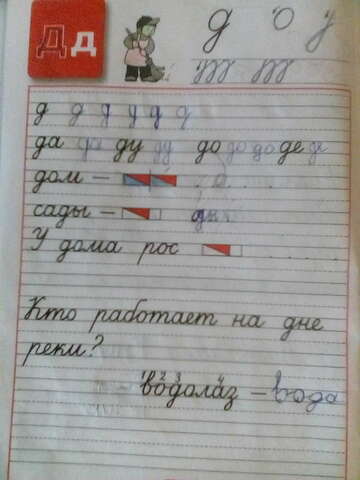 Д д
д о у
т т
д д д у д д
да да ду ду до до до де де
дом –
сады – ды
У дома рос
Кто работает на дне
реки?
1 2 3 4
водолаз – вода